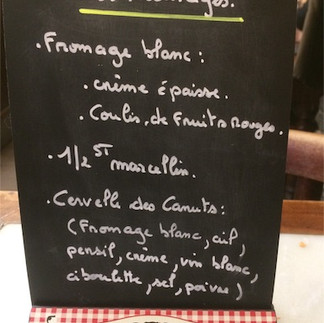 Fromages.
. Fromage blanc :
. crème épaisse.
. Coulis, de Fruits Rouges.
. 1/2 ST marcellin.
. Cervelle des Canuts :
(Fromage blanc, ail,
persil, crème, vin blanc,
ciboulette, sel, poivre)